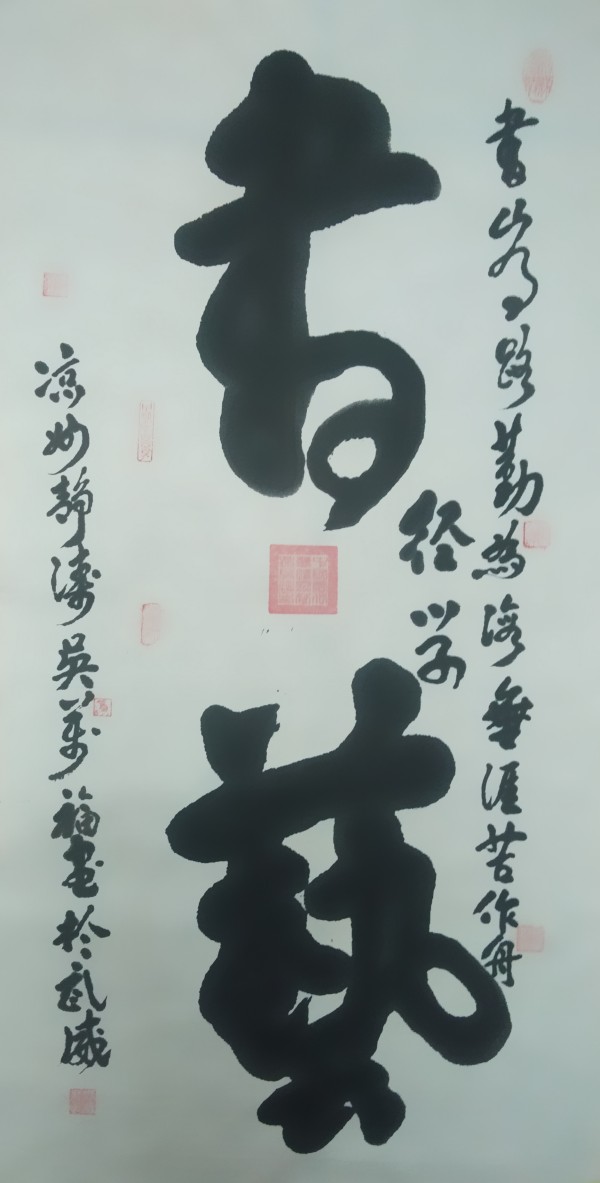 書山有路勤為海無涯苦作舟
径学
書藝
凉州静濤吳萬福書於武威